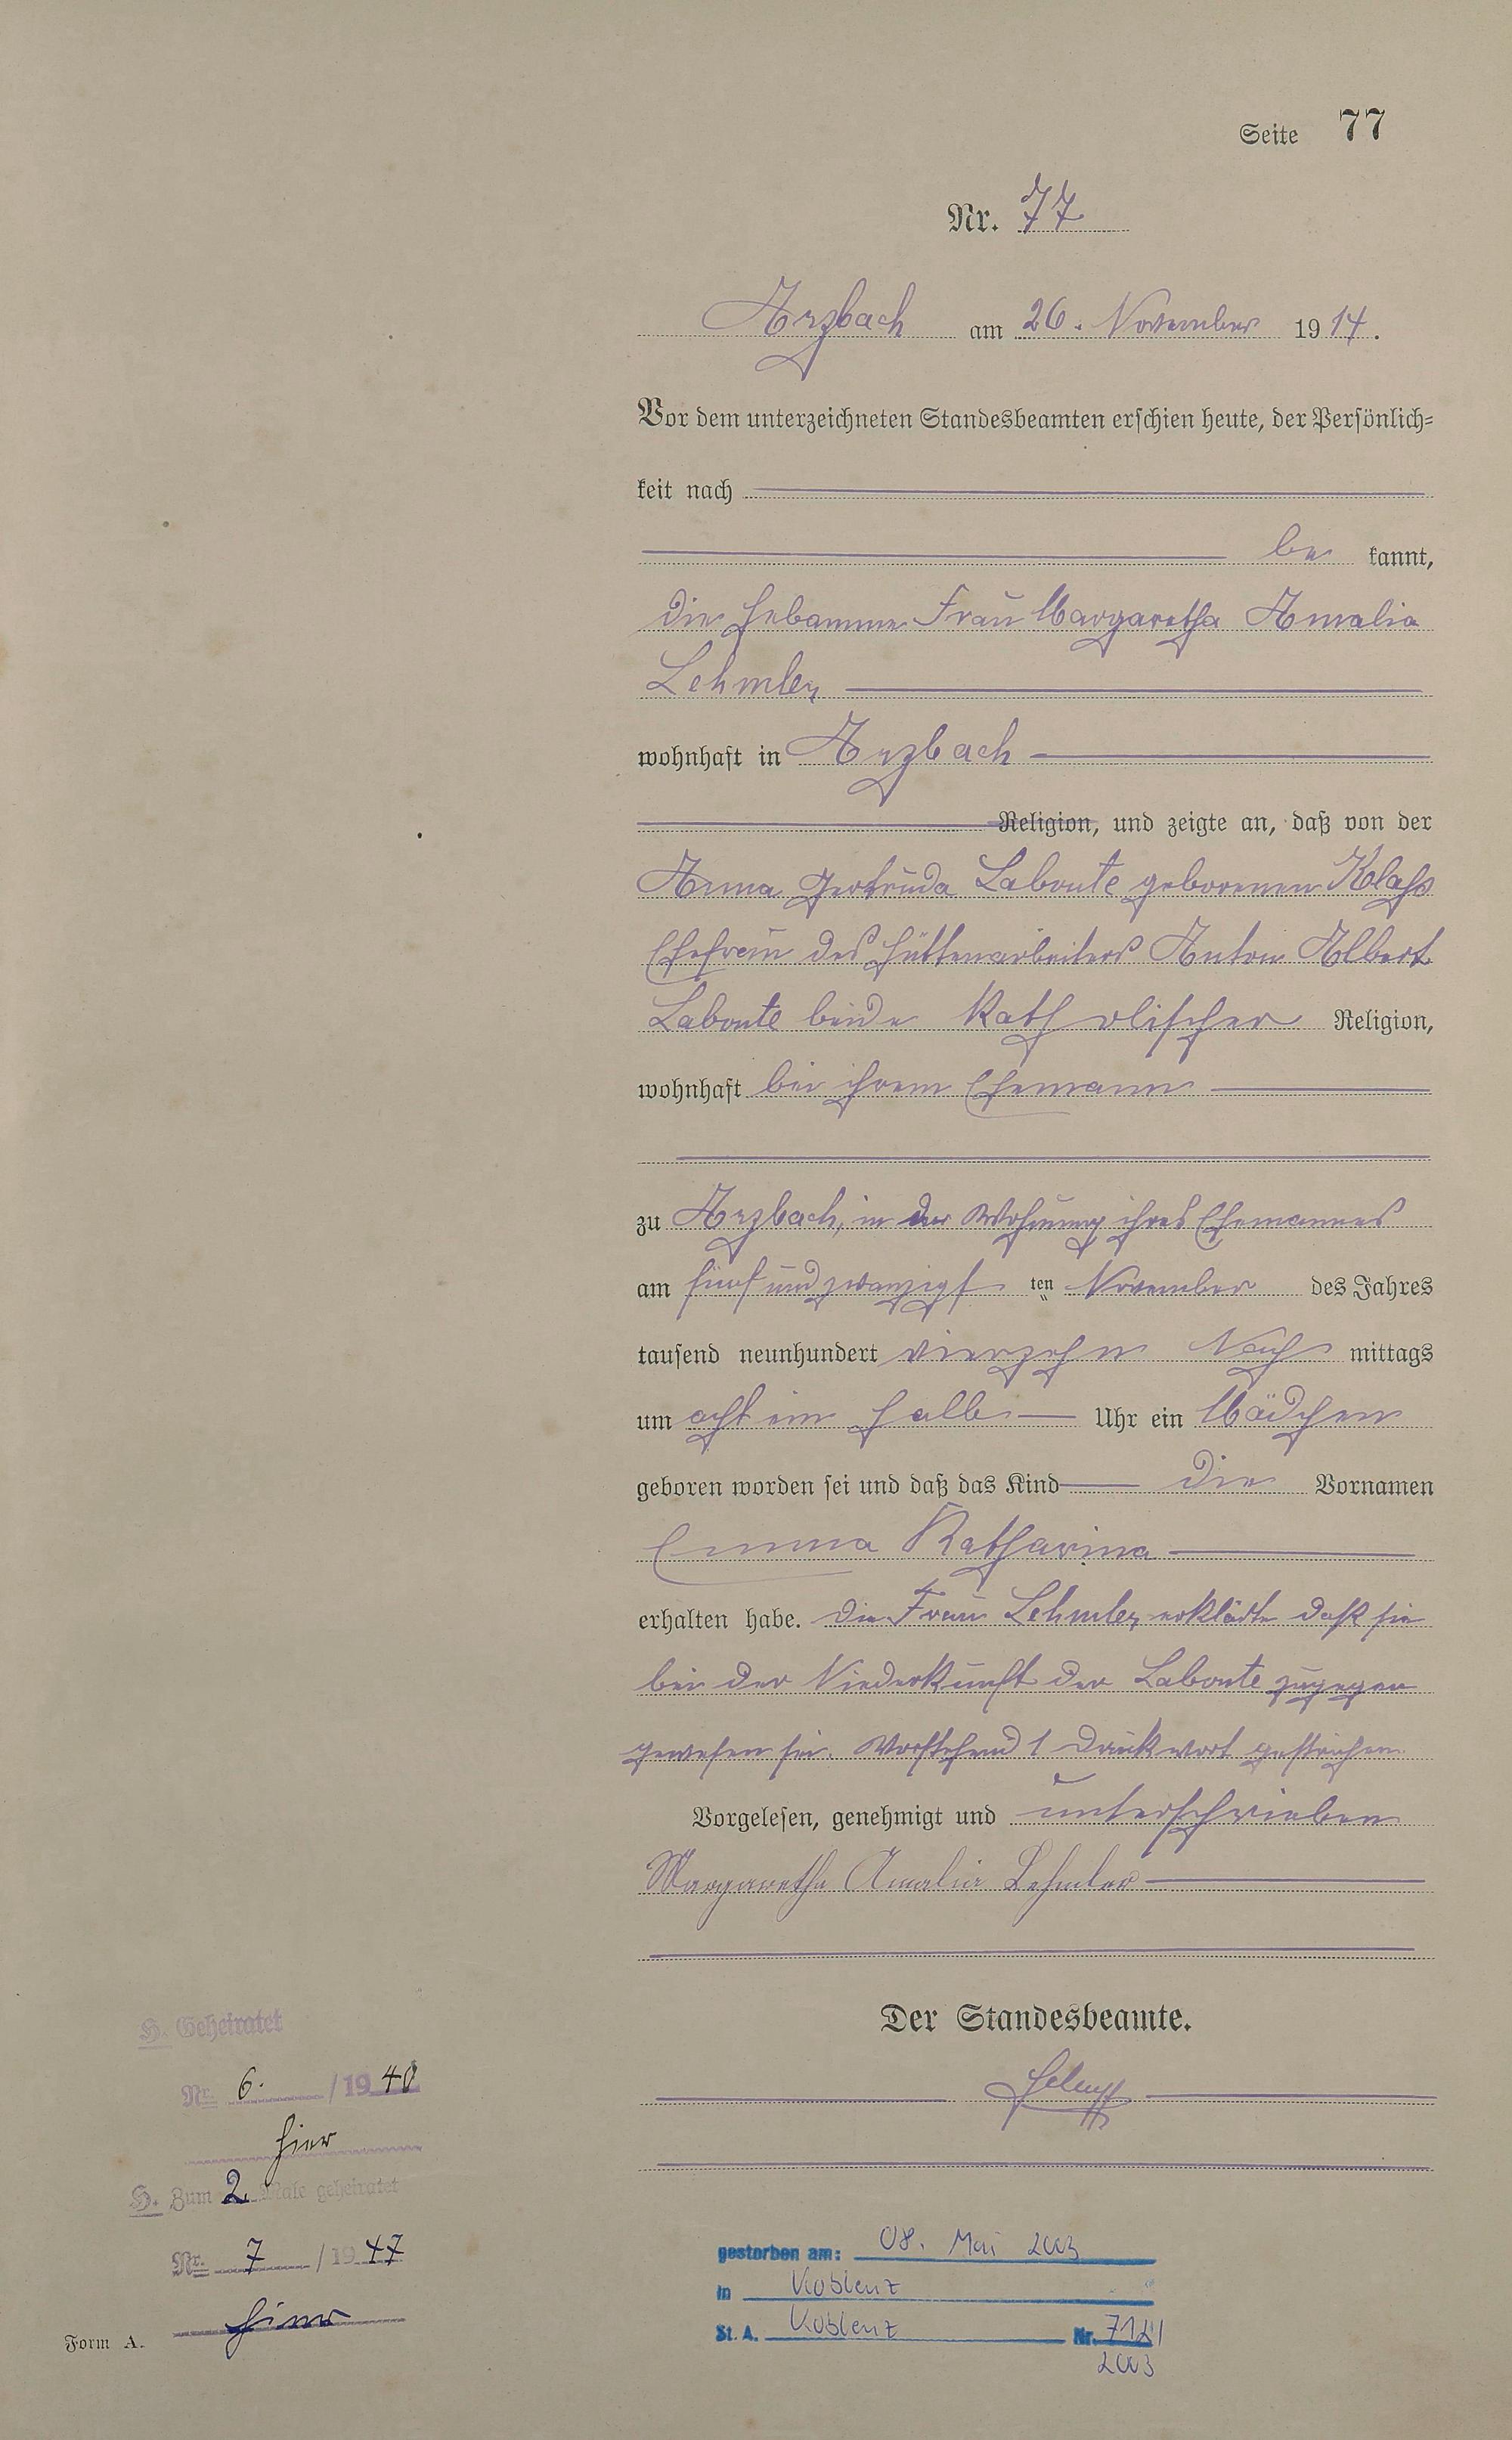 Seite 77
Nr. 77
Arzbach am 26. November 1914.
Vor dem unterzeichneten Standesbeamten erschien heute, der Persönlich-
keit nach
be kannt,
die Hebamme Frau Margaretha Amalia
Lehmler
wohnhaft in Arzbach
Religion, und zeigte an, daß von der
Anna Gertruda Labonte geborenen Klahs
Ehefrau des Hüttenarbeiters Anton Albert
Labonte beide katholischer Religion,
wohnhaft bei ihrem Ehemann
zu Arzbach, in der Wohnung ihres Ehemannes
am fünf und zwanzigsten November des Jahres
tausend neunhundert vierzehn Nach mittags
um acht ein halb Uhr ein Mädchen
geboren worden sei und daß das Kind die Vornamen
Emma Katharina
erhalten habe. Die Frau Lehmler erklärte daß sie
bei der Niederkunft der Labonte zugegen
gewesen sei. Vorstehend 1 Druckwort gestrichen.
Vorgelesen, genehmigt und unterschrieben
Margaretha Amalia Lehmler
Der Standesbeamte.
H. Geheiratet
Nr. 6. /1940
hier
H. Zum 2. Male geheiratet
Nr. 7 /1947
hier
Form A.
gestorben am: 08. Mai 2003
in Koblenz
St. A. Koblenz Nr.
2003